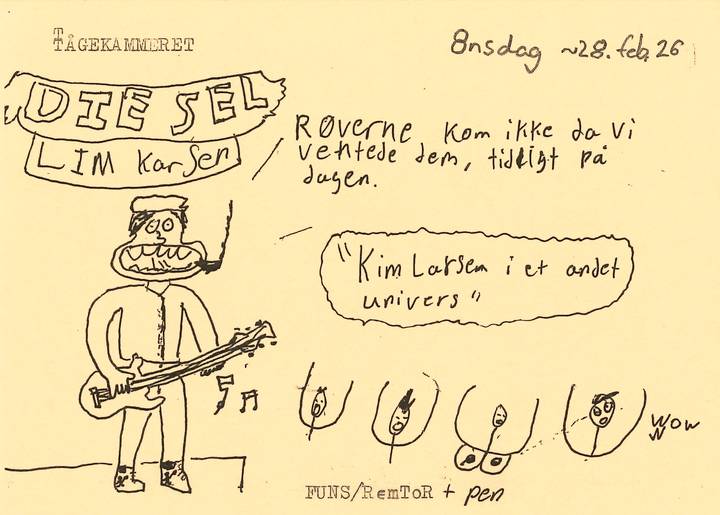 TÅGEKAMMERET
Onsdag ~28. feb. 26
DIESEL
LIM Karsen
RØVERNE kom ikke da vi
ventede dem, tidligt på
dagen.
"Kim Larsen i et andet
univers"
WOW
FUNS/RemToR + pen